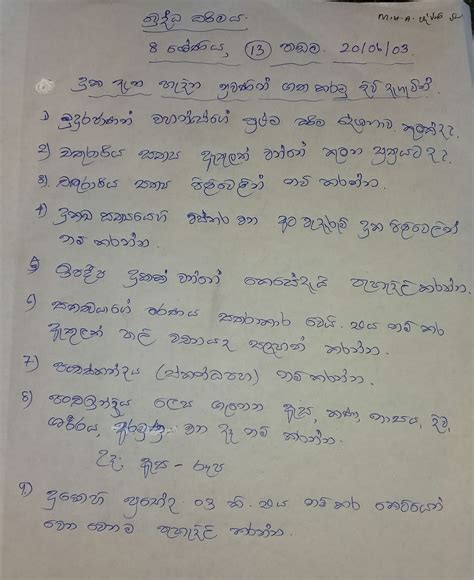 බුද්ධ චරිතය. M.H.A.
8 ශ්‍රේණිය, (13) පාඩම. 20/04/03.
දුක ඇත හැදින ප්‍රවණින් ගත කරමු දිවි දැහැවින්.
1) බුදුරජාණන් වහන්සේගේ ප්‍රථම ධර්ම දේශනාව කුමක්ද?
2) චතුරාර්ය සත්‍ය ඇතුළත් වන්නේ කුමන සූත්‍රයටද?
3) චතුරාර්ය සත්‍ය පිළිවෙළින් නම් කරන්න.
4) දුක්ඛ සත්‍යයෙහි විස්තර වන අට වැදෑරුම් දුක පිළිවෙළින්
නම් කරන්න.
5) ඉපදීම දුකක් වන්නේ කෙසේදැයි පැහැදිලි කරන්න.
6) සත්ත්වයාගේ මරණය සතරාකාර වෙයි. ඒය නම් කර
ඇතුළත් පාලි වචනයද සඳහන් කරන්න.
7) පංචස්කන්ධය (ස්කන්ධපහ) නම් කරන්න.
8) පංචඉන්ද්‍රිය ලෙස ගැනෙන ඇස, කණ, නාසය, දිව,
ශරීරය, අරමුණු වන දෑ නම් කරන්න.
උදා: ඇස - රූප
9) දුකෙහි ප්‍රභේද 03 කි. ඒය නම් කර කෙටියෙන්
වෙන වෙනම පැහැදිලි කරන්න.